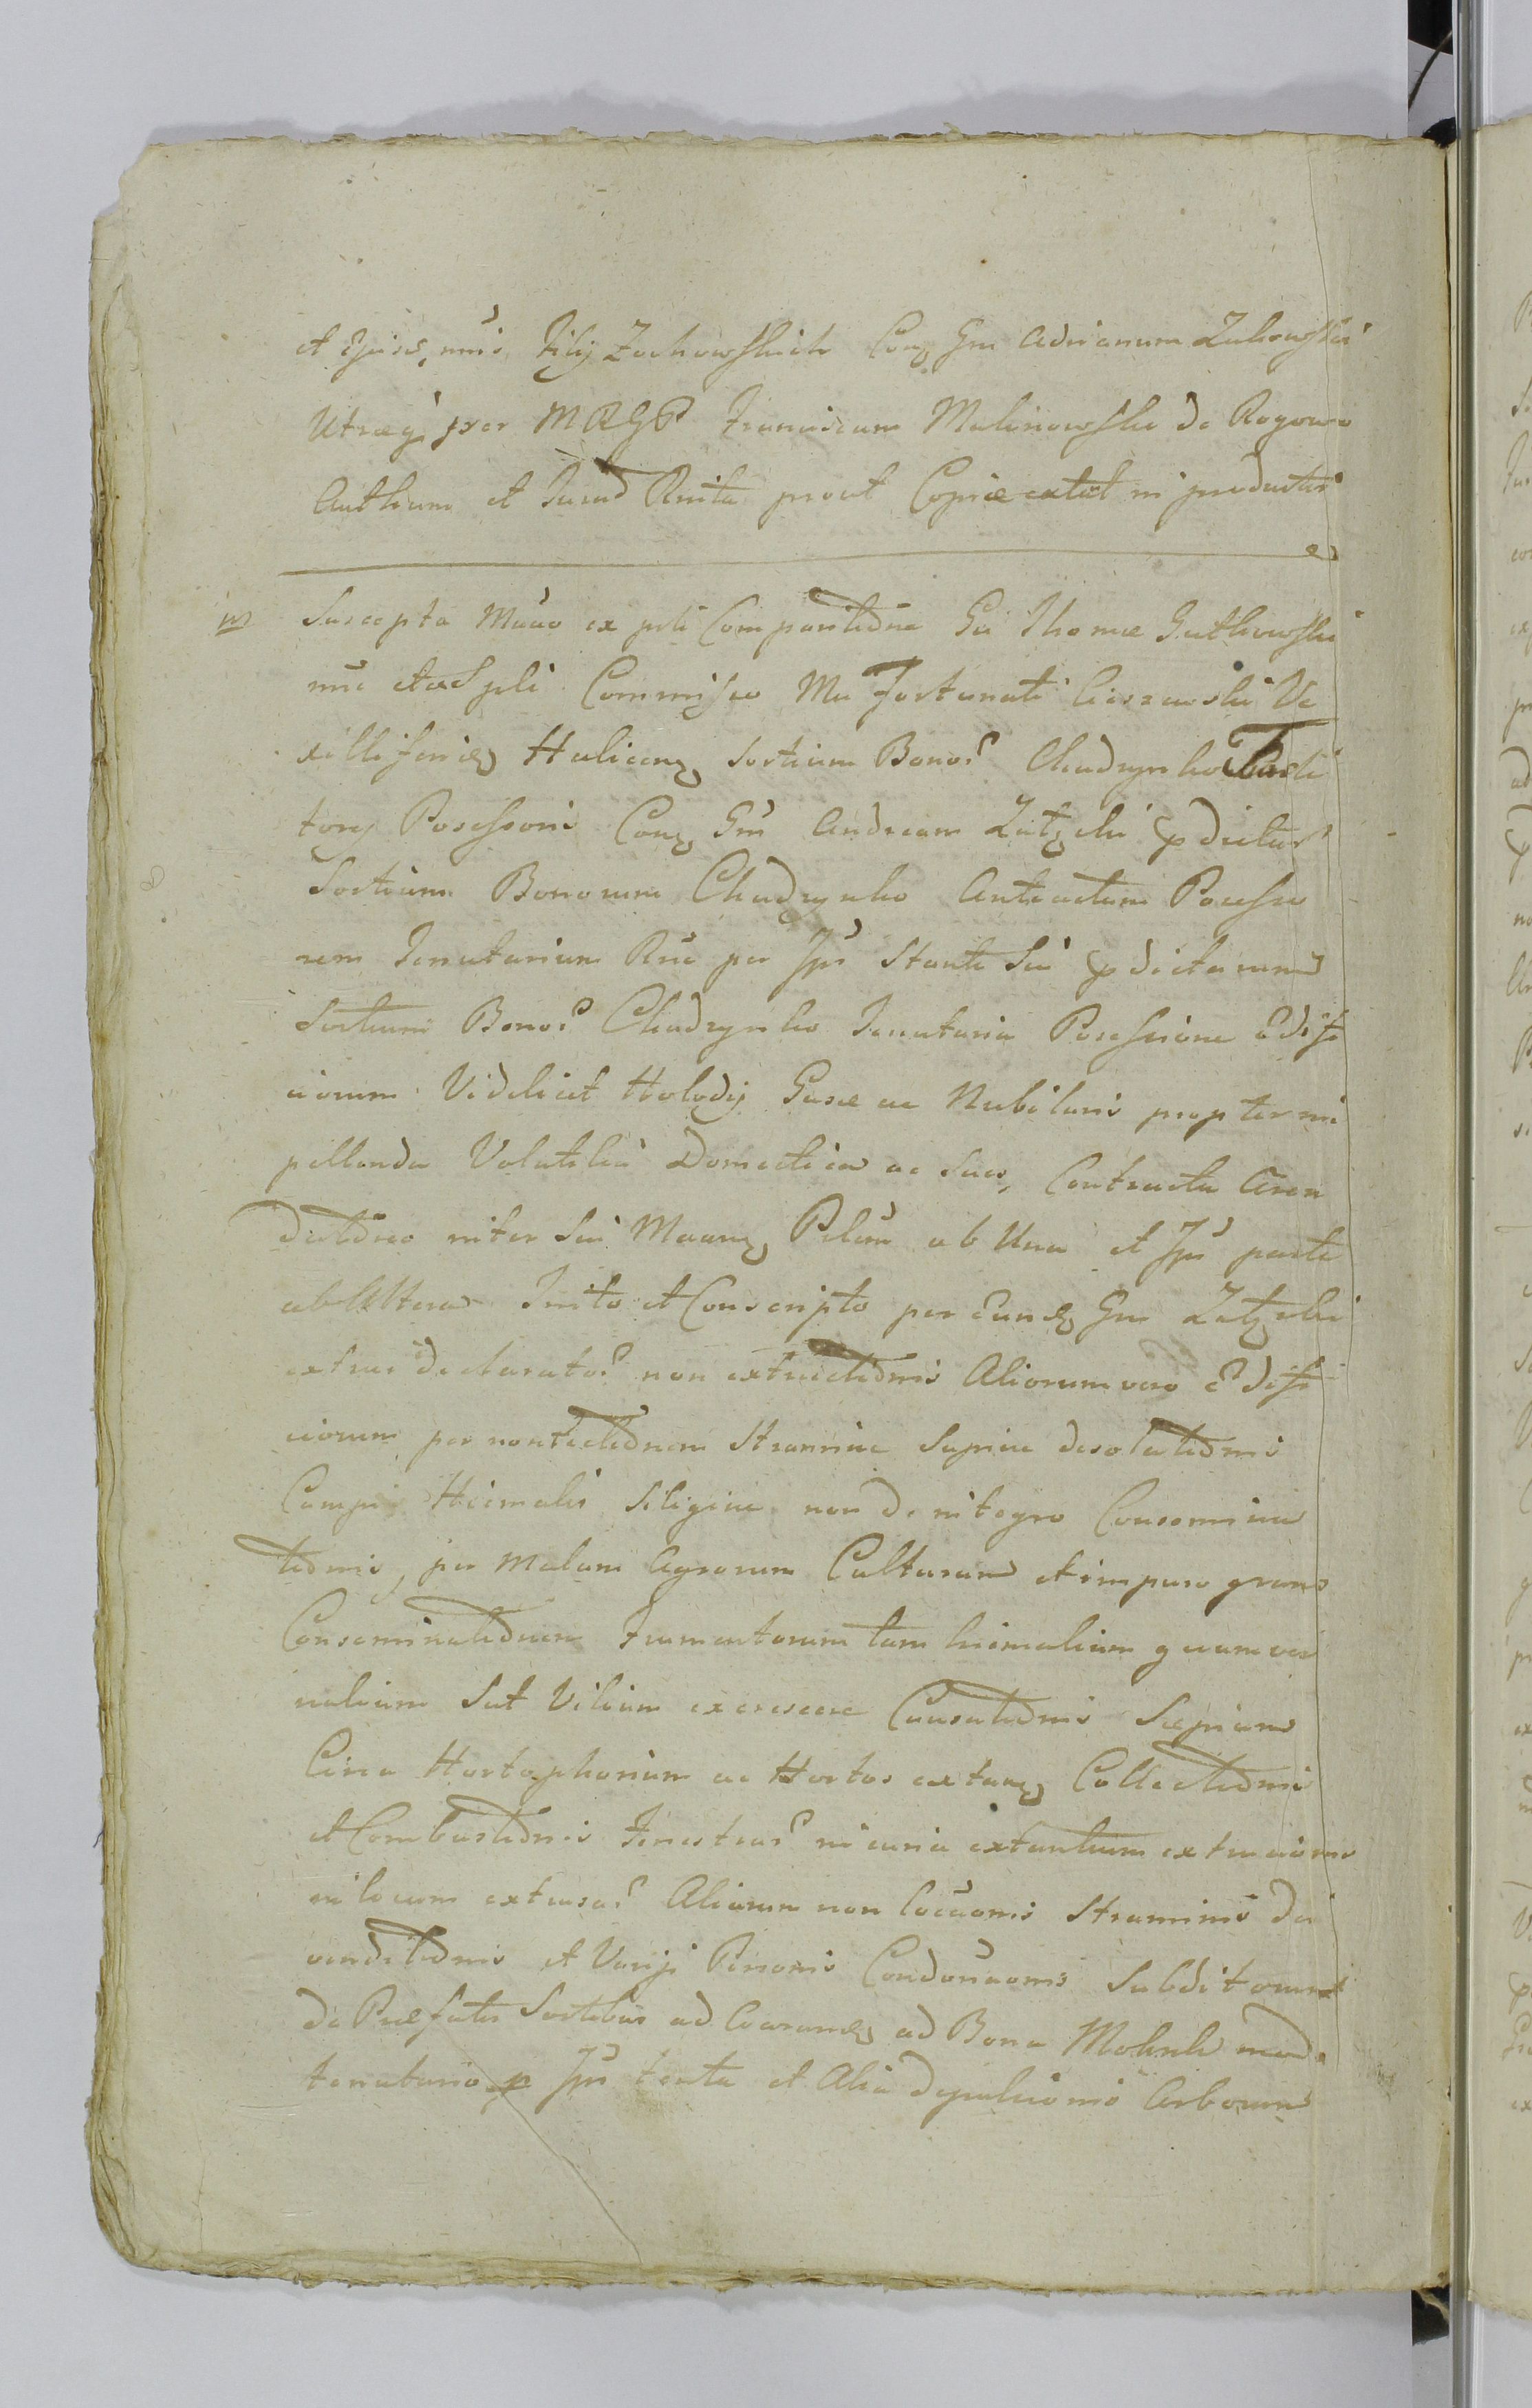 et Ejusd, nris Filij Zochowskich Con Gm Adrianum Zukowski
Utraeq per MRGP Franciscum Malinowski de Rogowo
Authum et Jurad Rnita prout Copiae extat in productis
m Suscepta Manu ex pli Comparitione Gi Thomae Gutkowski
nri et ex Spli Commisso Mci Fortunati Cieszewski Ve
xilliferid Halicen Sortium Bonor Chudzynko
tory Posessoris Con Gm Andream Zatzeki pdictar
Sortium Bonorum Chudzynko Anteactum Possesso
rem Tenutarium Rne per Ipm Stante Sui pdictarum
Sortium Bonor Chudzynko Tenutaria Posessione Edifi
ciorum Videlicet Holodij Casae ac Nubilaris propter im
pellenda Volatilia Domestica ac Sues, Contractu Aren
dationeo inter Sui Maunq Plum ab Una et Ipm parte
ab Altera Inito et Conscripto per Eund Gm Zatzeki
extrui declarator non extructionis Aliorum vero Edifi
ciorum per nontectionem Stramine Supine desolationis
Campi Hiemalis Siligine non de integro Consemina
tionis, per Malam Agrorum Culturam et impuro grano
Conseminationem Frumentorum tam hiemalium quam ver
nalium Sat Vilium excrescere Causationis Sepium
Circa Hortophorium ac Hortos extanq Collectionis
et Combustionis Fenestrar in curia extantium extruionis
in locum extrusar Aliarum non locaonis Straminis di
venditionis et Varij Pensonis Condonaonis Subditorum
de Praefatis Sortibus ad Coarand ad Bona Mokrk mod
tenutario p Ipm tenta et Alia depulsionis Arborum